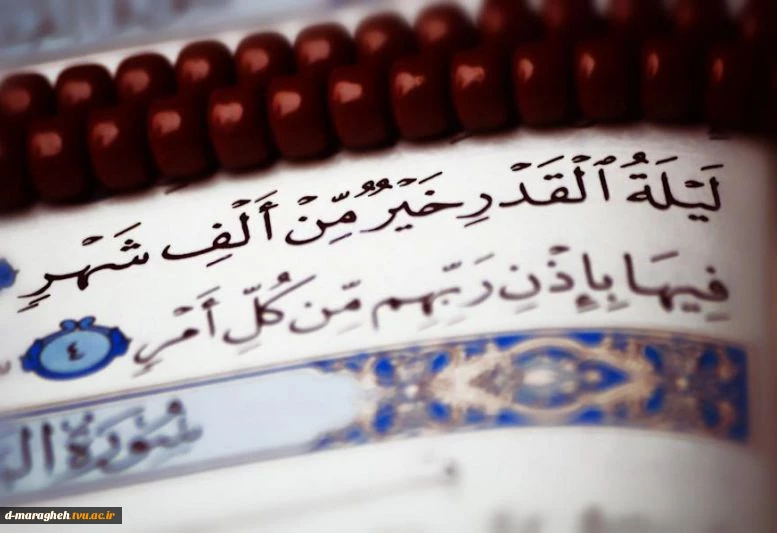 لَيْلَةُ ٱلْقَدْرِ خَيْرٌ مِّنْ أَلْفِ شَهْرٍ
فِيهَا بِإِذْنِ رَبِّهِم مِّن كُلِّ أَمْرٍ ٤
سُورَةُ
d-maragheh.tvu.ac.ir